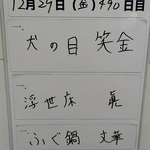 12月29日(金)490日目
一、
犬の目 笑金
一、
浮世床 眞
一、
ふぐ鍋 文華